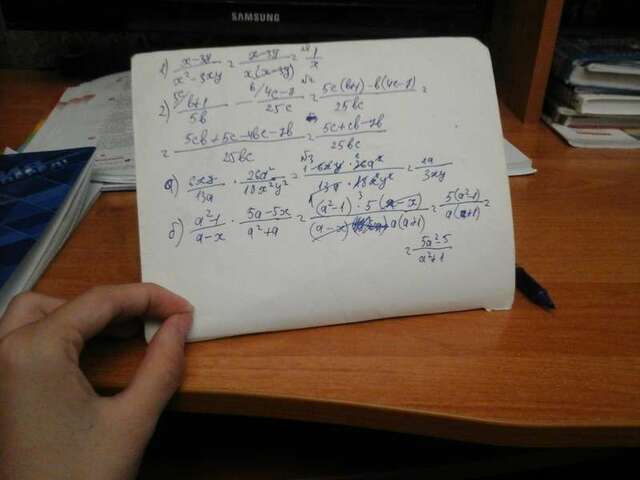 SAMSUNG
1) x-3y / x²-3xy = x-3y / x(x-3y) = 1/x
2) b+1 / 5b - 4c-7 / 25c = 5c(b+1)-b(4c-7) / 25bc =
= 5cb+5c-4bc-7b / 25bc = 5c+cb-7b / 25bc
№3
а) · 26a² / 18x²y² = = 2a / 3xy
б) a²-1 / a-x · 5a-5x / a²+a = (a²-1)·5(a-x) / (a-x) a(a+1) = 5(a²-1) / a(a+1) =
= 5a²-5 / a²+1